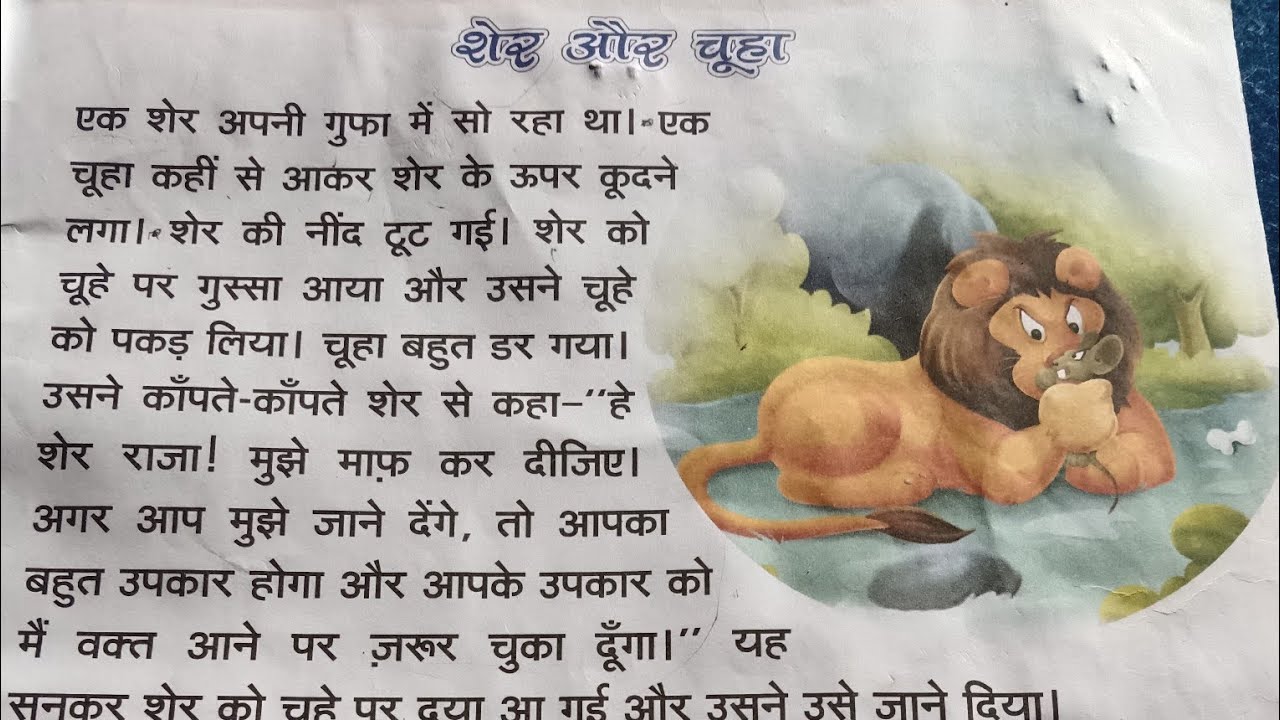 शेर और चूहा
एक शेर अपनी गुफा में सो रहा था। एक
चूहा कहीं से आकर शेर के ऊपर कूदने
लगा। शेर की नींद टूट गई। शेर को
चूहे पर गुस्सा आया और उसने चूहे
को पकड़ लिया। चूहा बहुत डर गया।
उसने काँपते-काँपते शेर से कहा–"हे
शेर राजा! मुझे माफ़ कर दीजिए।
अगर आप मुझे जाने देंगे, तो आपका
बहुत उपकार होगा और आपके उपकार को
मैं वक्त आने पर ज़रूर चुका दूँगा।" यह
सुनकर शेर को चूहे पर दया आ गई और उसने उसे जाने दिया।